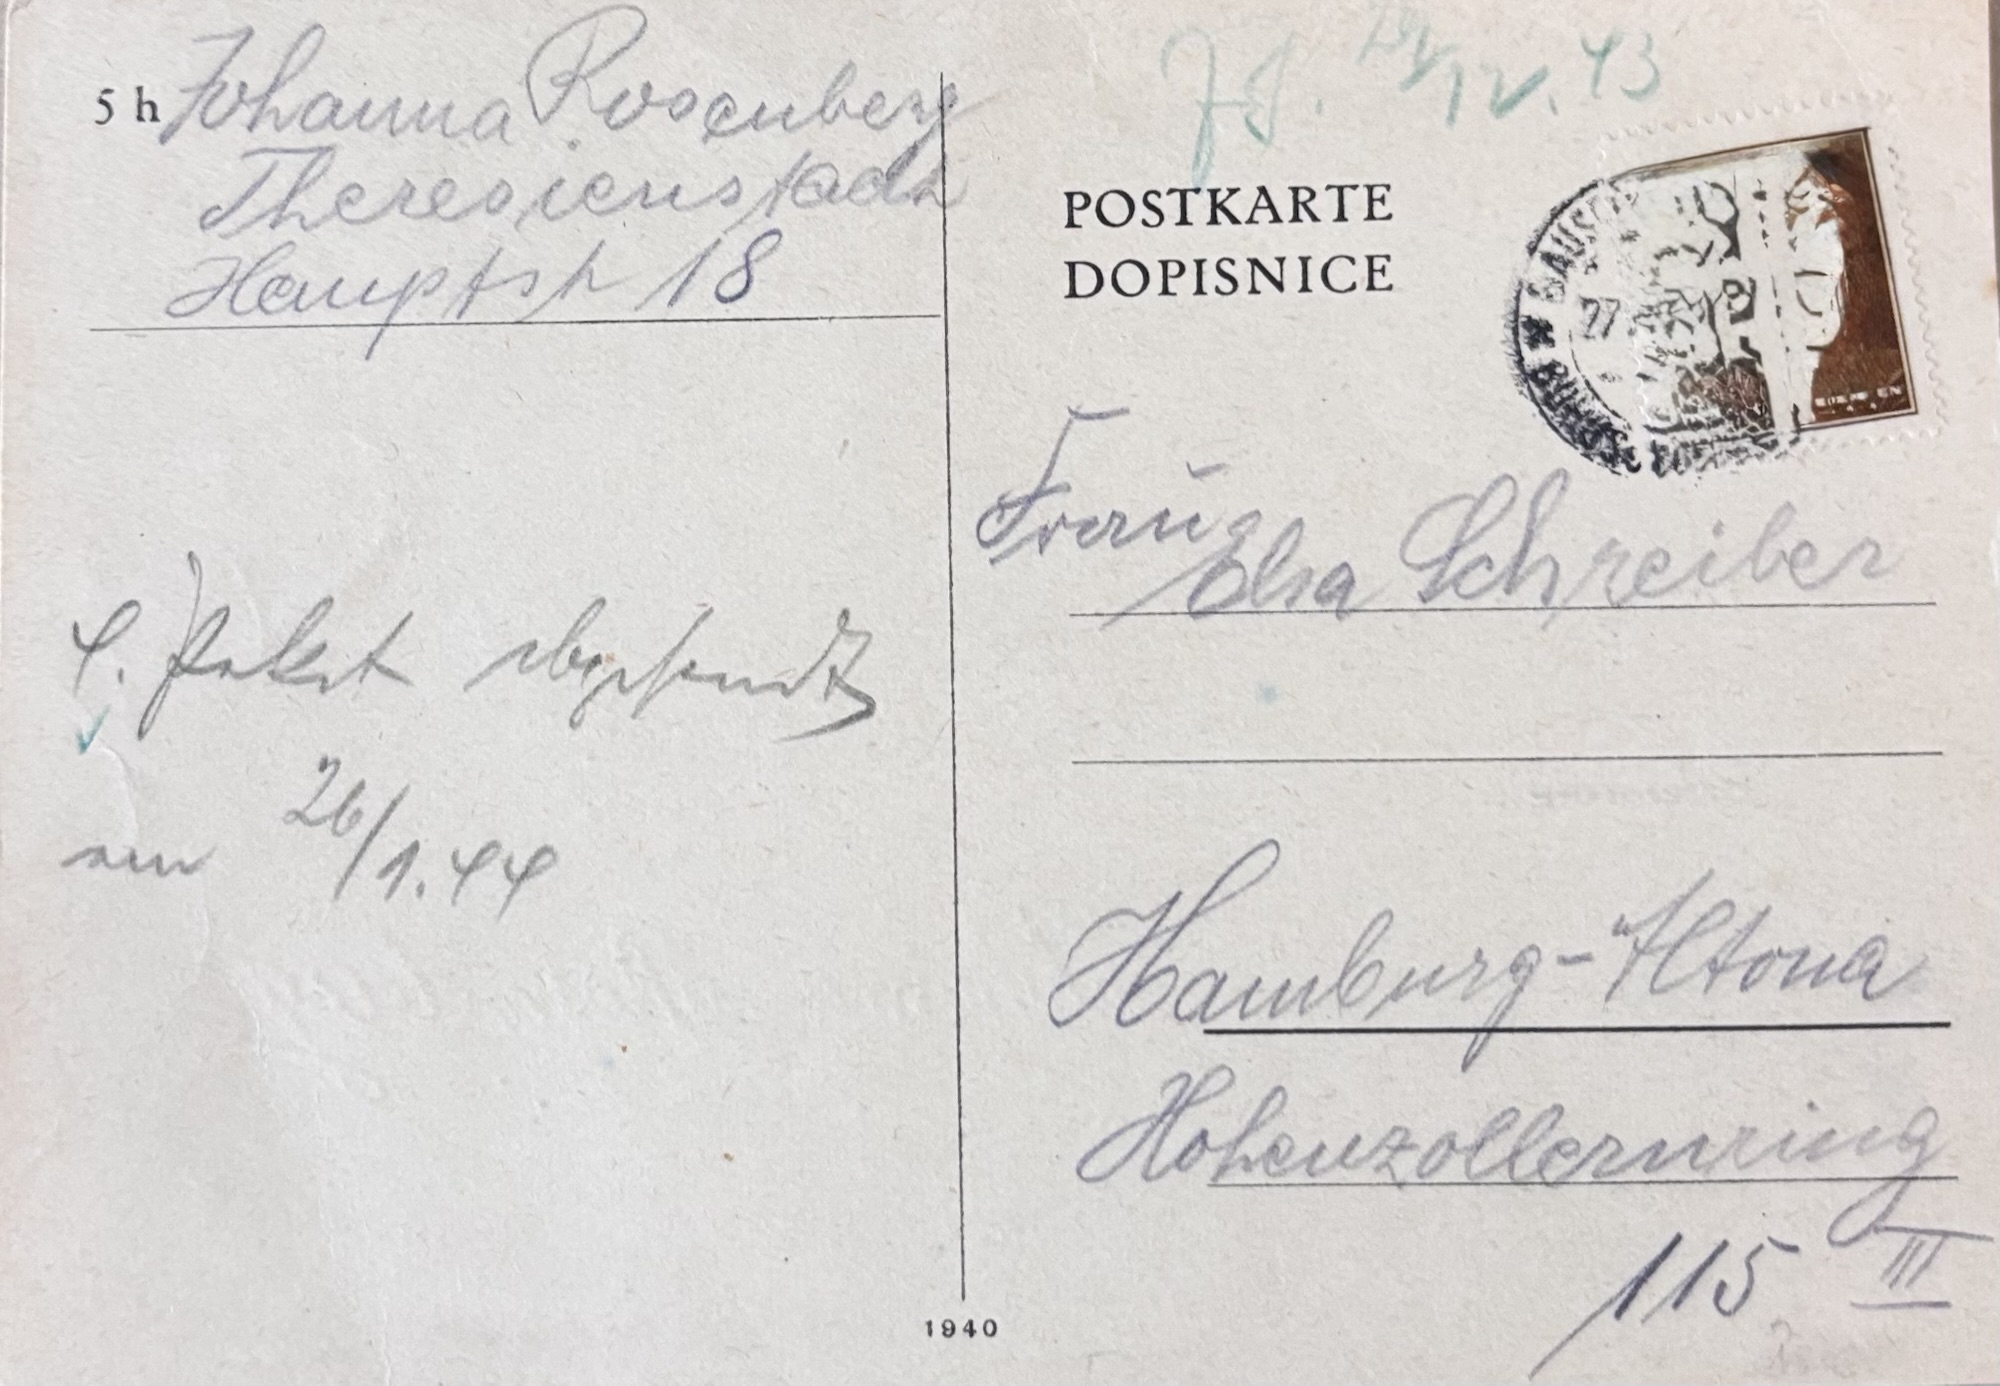 5 h Johanna Rosenberg
Theresienstadt
Hauptstr 18
4. Paket abgesandt
am 26/1.44
12.43
POSTKARTE
DOPISNICE
BAUSCH
27
Frau
Elsa Schreiber
Hamburg-Altona
Hohenzollernring
115 III
1940